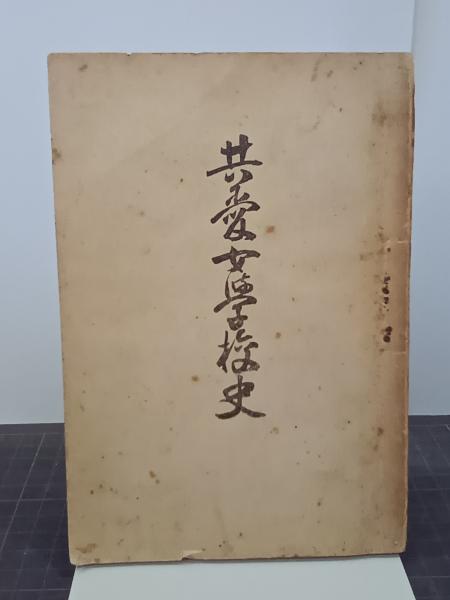 共愛女學校史